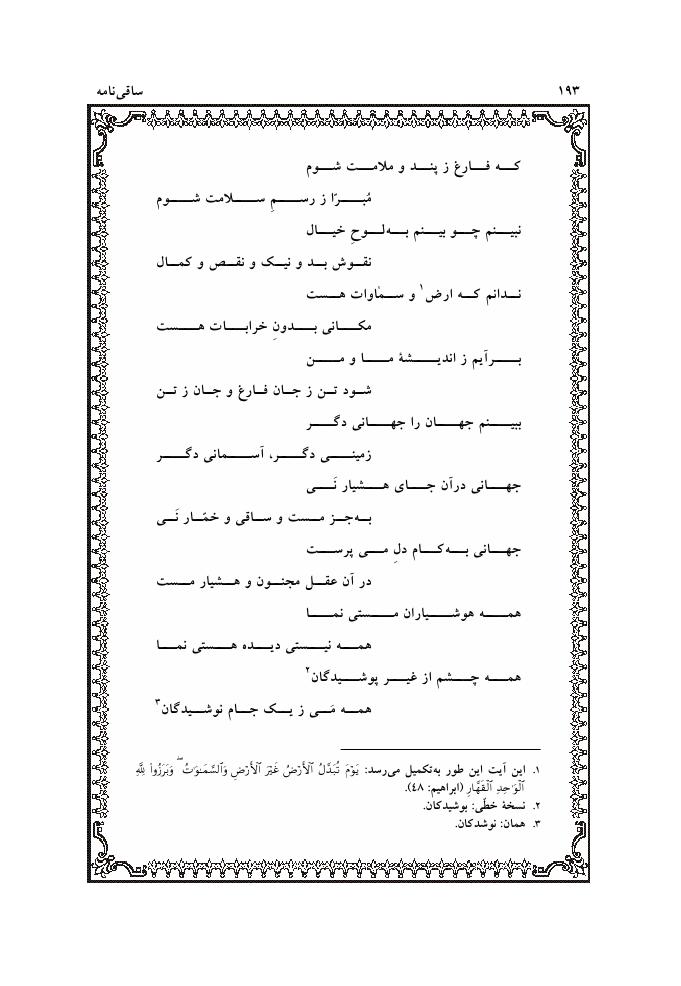 ۱۹۳
ساقی‌نامه
کـه فـارغ ز پنـد و ملامـت شـوم
مُبـرّا ز رسـمِ سـلامت شـوم
نبینم چـو بینم بـه‌لـوحِ خیـال
نقـوش بـد و نیـک و نقـص و کمـال
نـدانم کـه ارض۱ و سـماوات هـست
مکـانی بـدونِ خرابـات هـست
بـرآیم ز اندیـشۀ مـا و مـن
شـود تـن ز جـان فـارغ و جـان ز تـن
ببیـنم جهـان را جهـانی دگـر
زمینـی دگـر، آسـمانی دگـر
جهـانی درآن جـای هـشیار نَـی
بـه‌جـز مـست و ساقی و خمّـار نَـی
جهـانی بـه‌کـام دلِ مـی پرسـت
در آن عقـل مجنـون و هـشیار مـست
همـه هوشـیاران مـستی نمـا
همـه نیـستی دیـده هـستی نمـا
همـه چـشم از غیـر پوشـیدگان۲
همـه مَـی ز یـک جـام نوشـیدگان۳
۱. این آیت این طور به‌تکمیل می‌رسد: يَوْمَ تُبَدَّلُ ٱلْأَرْضُ غَيْرَ ٱلْأَرْضِ وَٱلسَّمَٰوَٰتُ ۖ وَبَرَزُوا۟ لِلَّهِ
ٱلْوَٰحِدِ ٱلْقَهَّارِ (ابراهیم: ۴۸).
۲. نسخۀ خطّی: بوشیدکان.
۳. همان: نوشدکان.